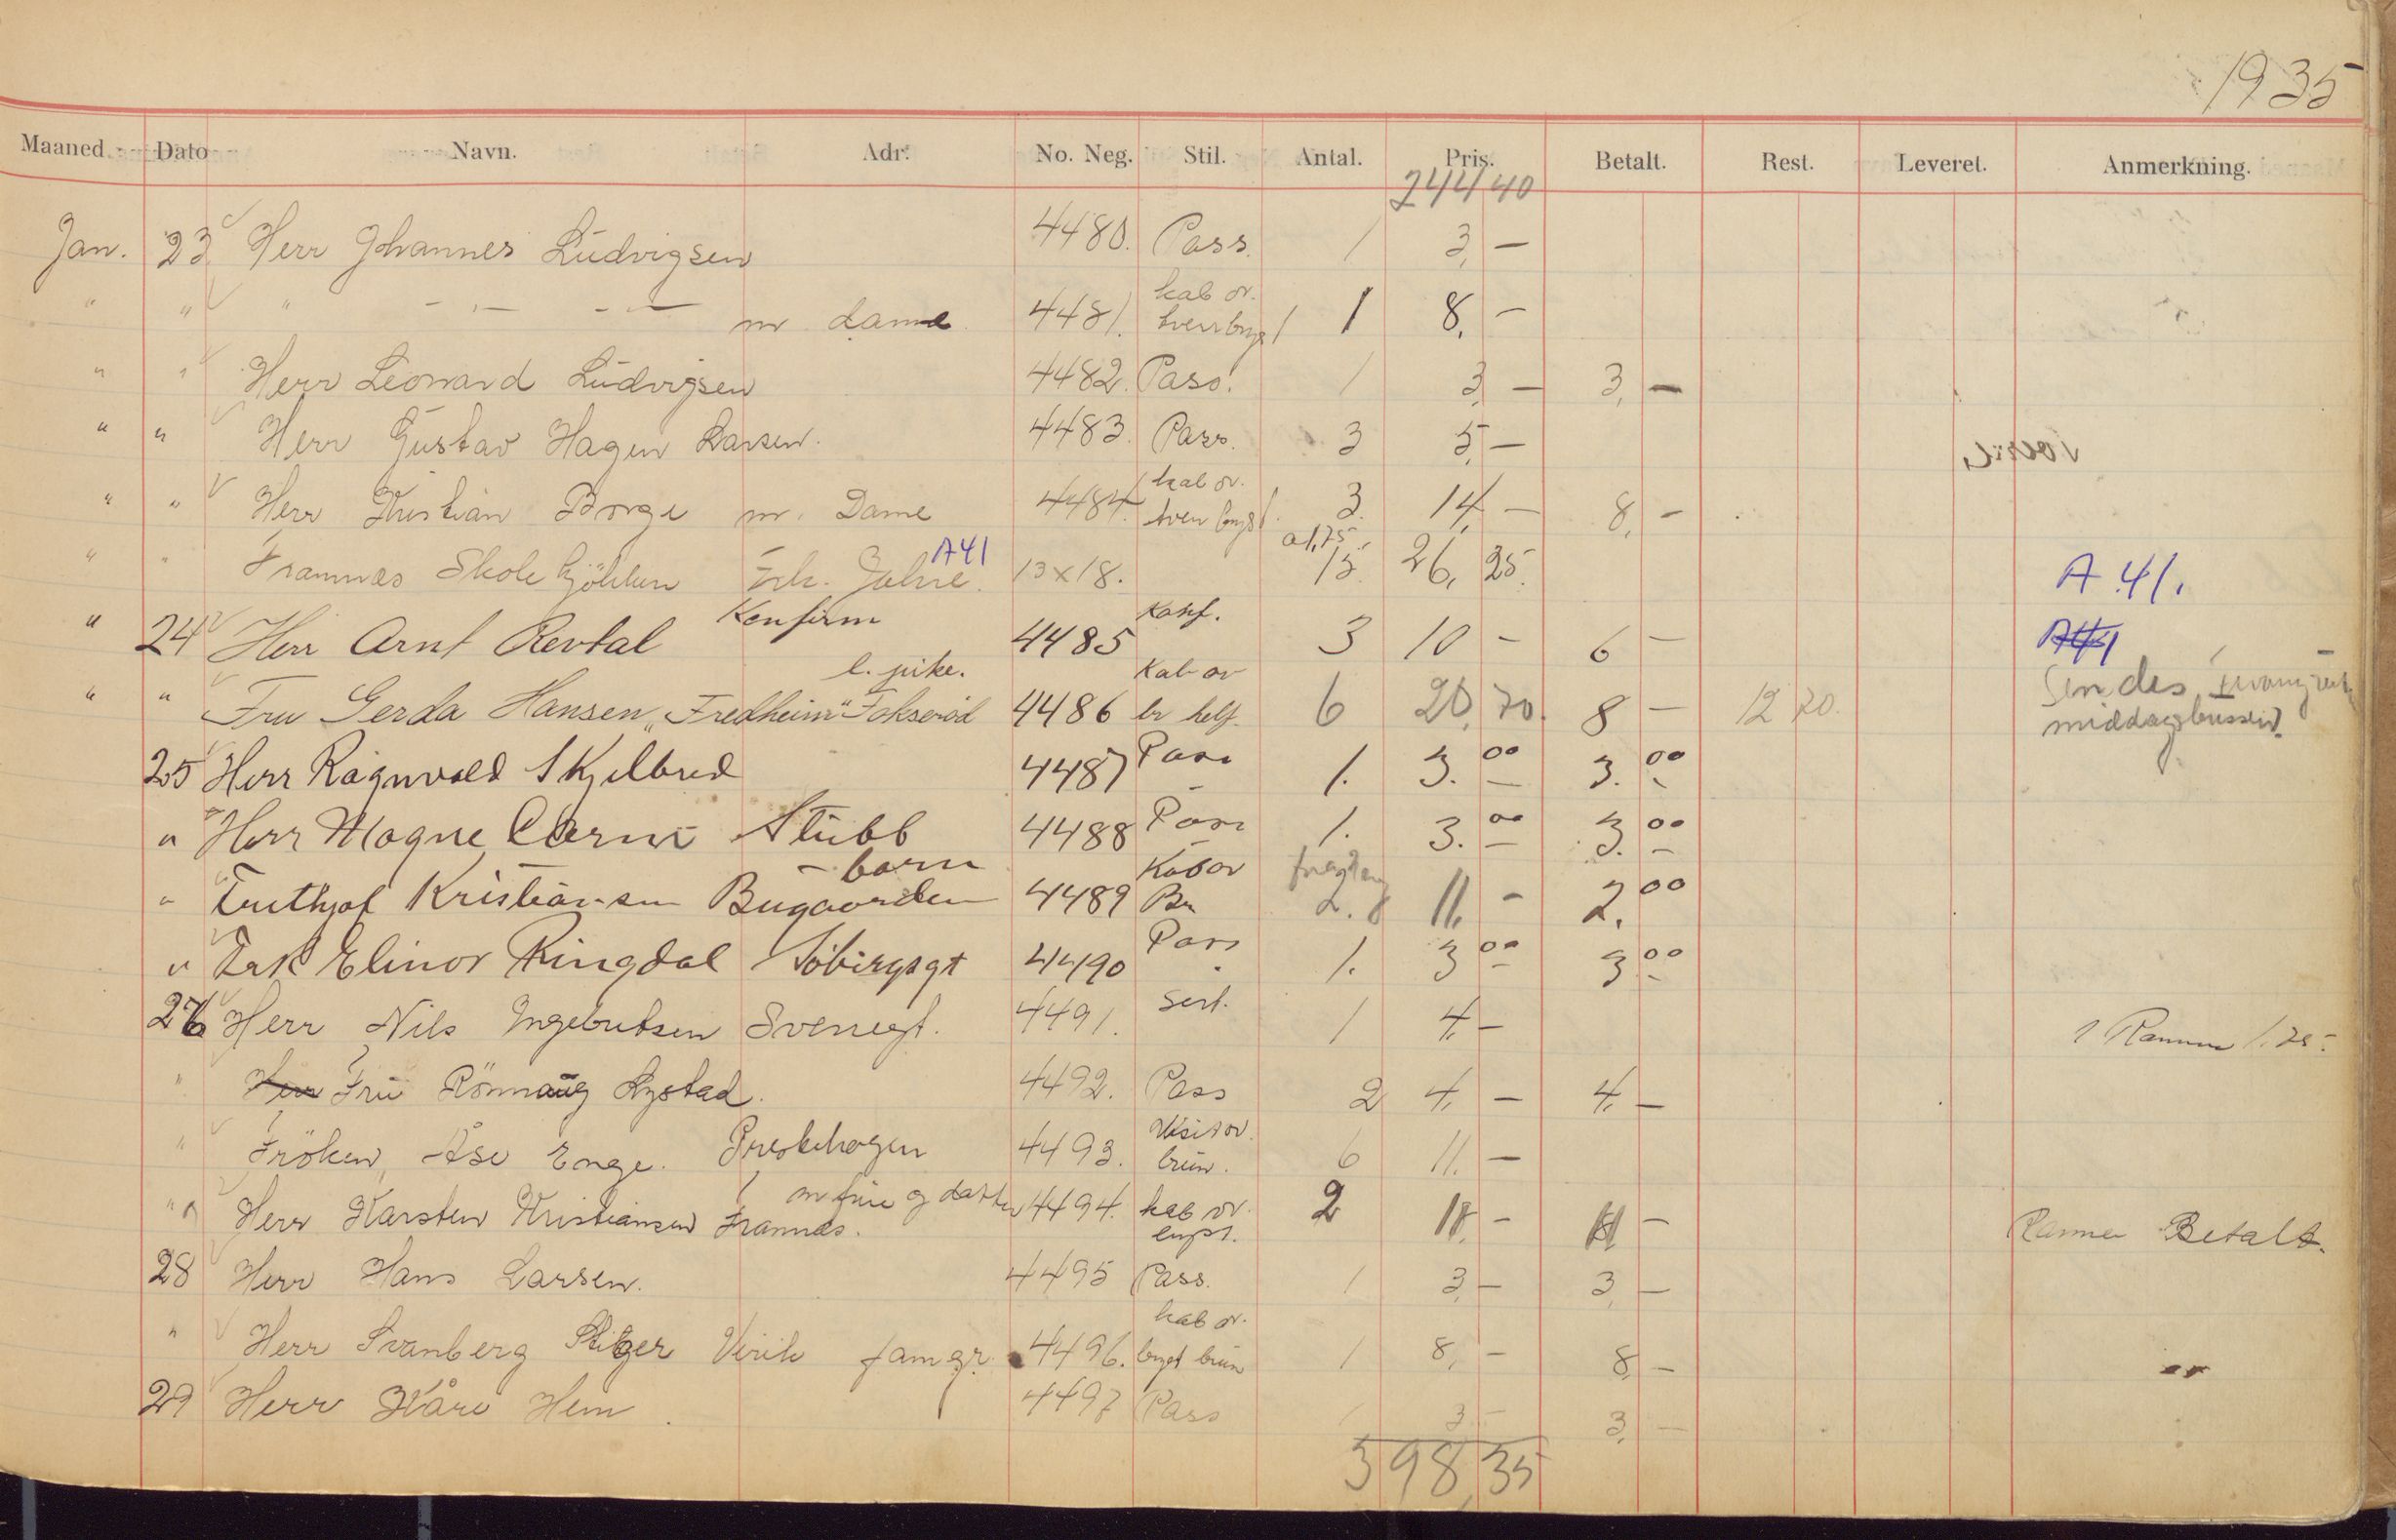 1935
Maaned. Dato Navn. Adr. No. Neg. Stil. Antal. Pris. Betalt. Rest. Leveret. Anmerkning.
244 40
Jan. 23 Herr Johannes Ludvigsen 4480. Pass. 1 3, —
" " " — — m dame 4481. kab ov. 1 8, —
" " Herr Leonard Ludvigsen 4482. Pass. 1 3, — 3, —
" " Herr Gustav Hagen Larsen. 4483. Pass. 3 5, —
" " Herr Kristian Borge m. Dame 4484. kab ov. 3. 14, — 8, —
" " Framnæs Skole Frk. Jahre. A41 13x18. a 1,75 15. 26, 25. A 41.
" 24 Herr Arnt Revtal Konfirm 4485 Konf. 3 10 — 6 — A41
" " Fru Gerda Hansen "Fredheim" Fokserød l. pike. 4486 Kab ov br helf. 6 20, 70. 8 — 12 70. Sendes middagsbussen.
25 Herr Ragnvald Skjelbred 4487 Pass 1. 3. 00 3. 00
" Herr Magne Stubb 4488 Pass 1. 3. 00 3. 00
" Kristiansen Bugaarden - barn 4489 Kab ov Br 2. 8 11, — 2. 00
" Frk Elinor Ringdal 4490 Pass 1. 3 00 3 00
26 Herr Nils Ingebretsen Svenegt. 4491. Sert. 1 4, — 1 Ramme 1.25.
" Herr Fru Rönnaug Lystad. 4492. Pass 2 4, — 4, —
" Fröken Åse Enge. Prestehagen 4493. Visit ov. brun. 6 11, —
" Herr Karsten Kristiansen m frue og datter Framnæs. 4494. kab ov. 2 11, — 11 — Ramme Betalt.
28 Herr Hans Larsen. 4495 Pass. 1 3, — 3, —
" Herr Svanberg Virik fam gr. 4496. kab ov. brun 1 8, — 8, —
29 Herr Kåre Hem. 4497 Pass 1 3 — 3, —
398,35